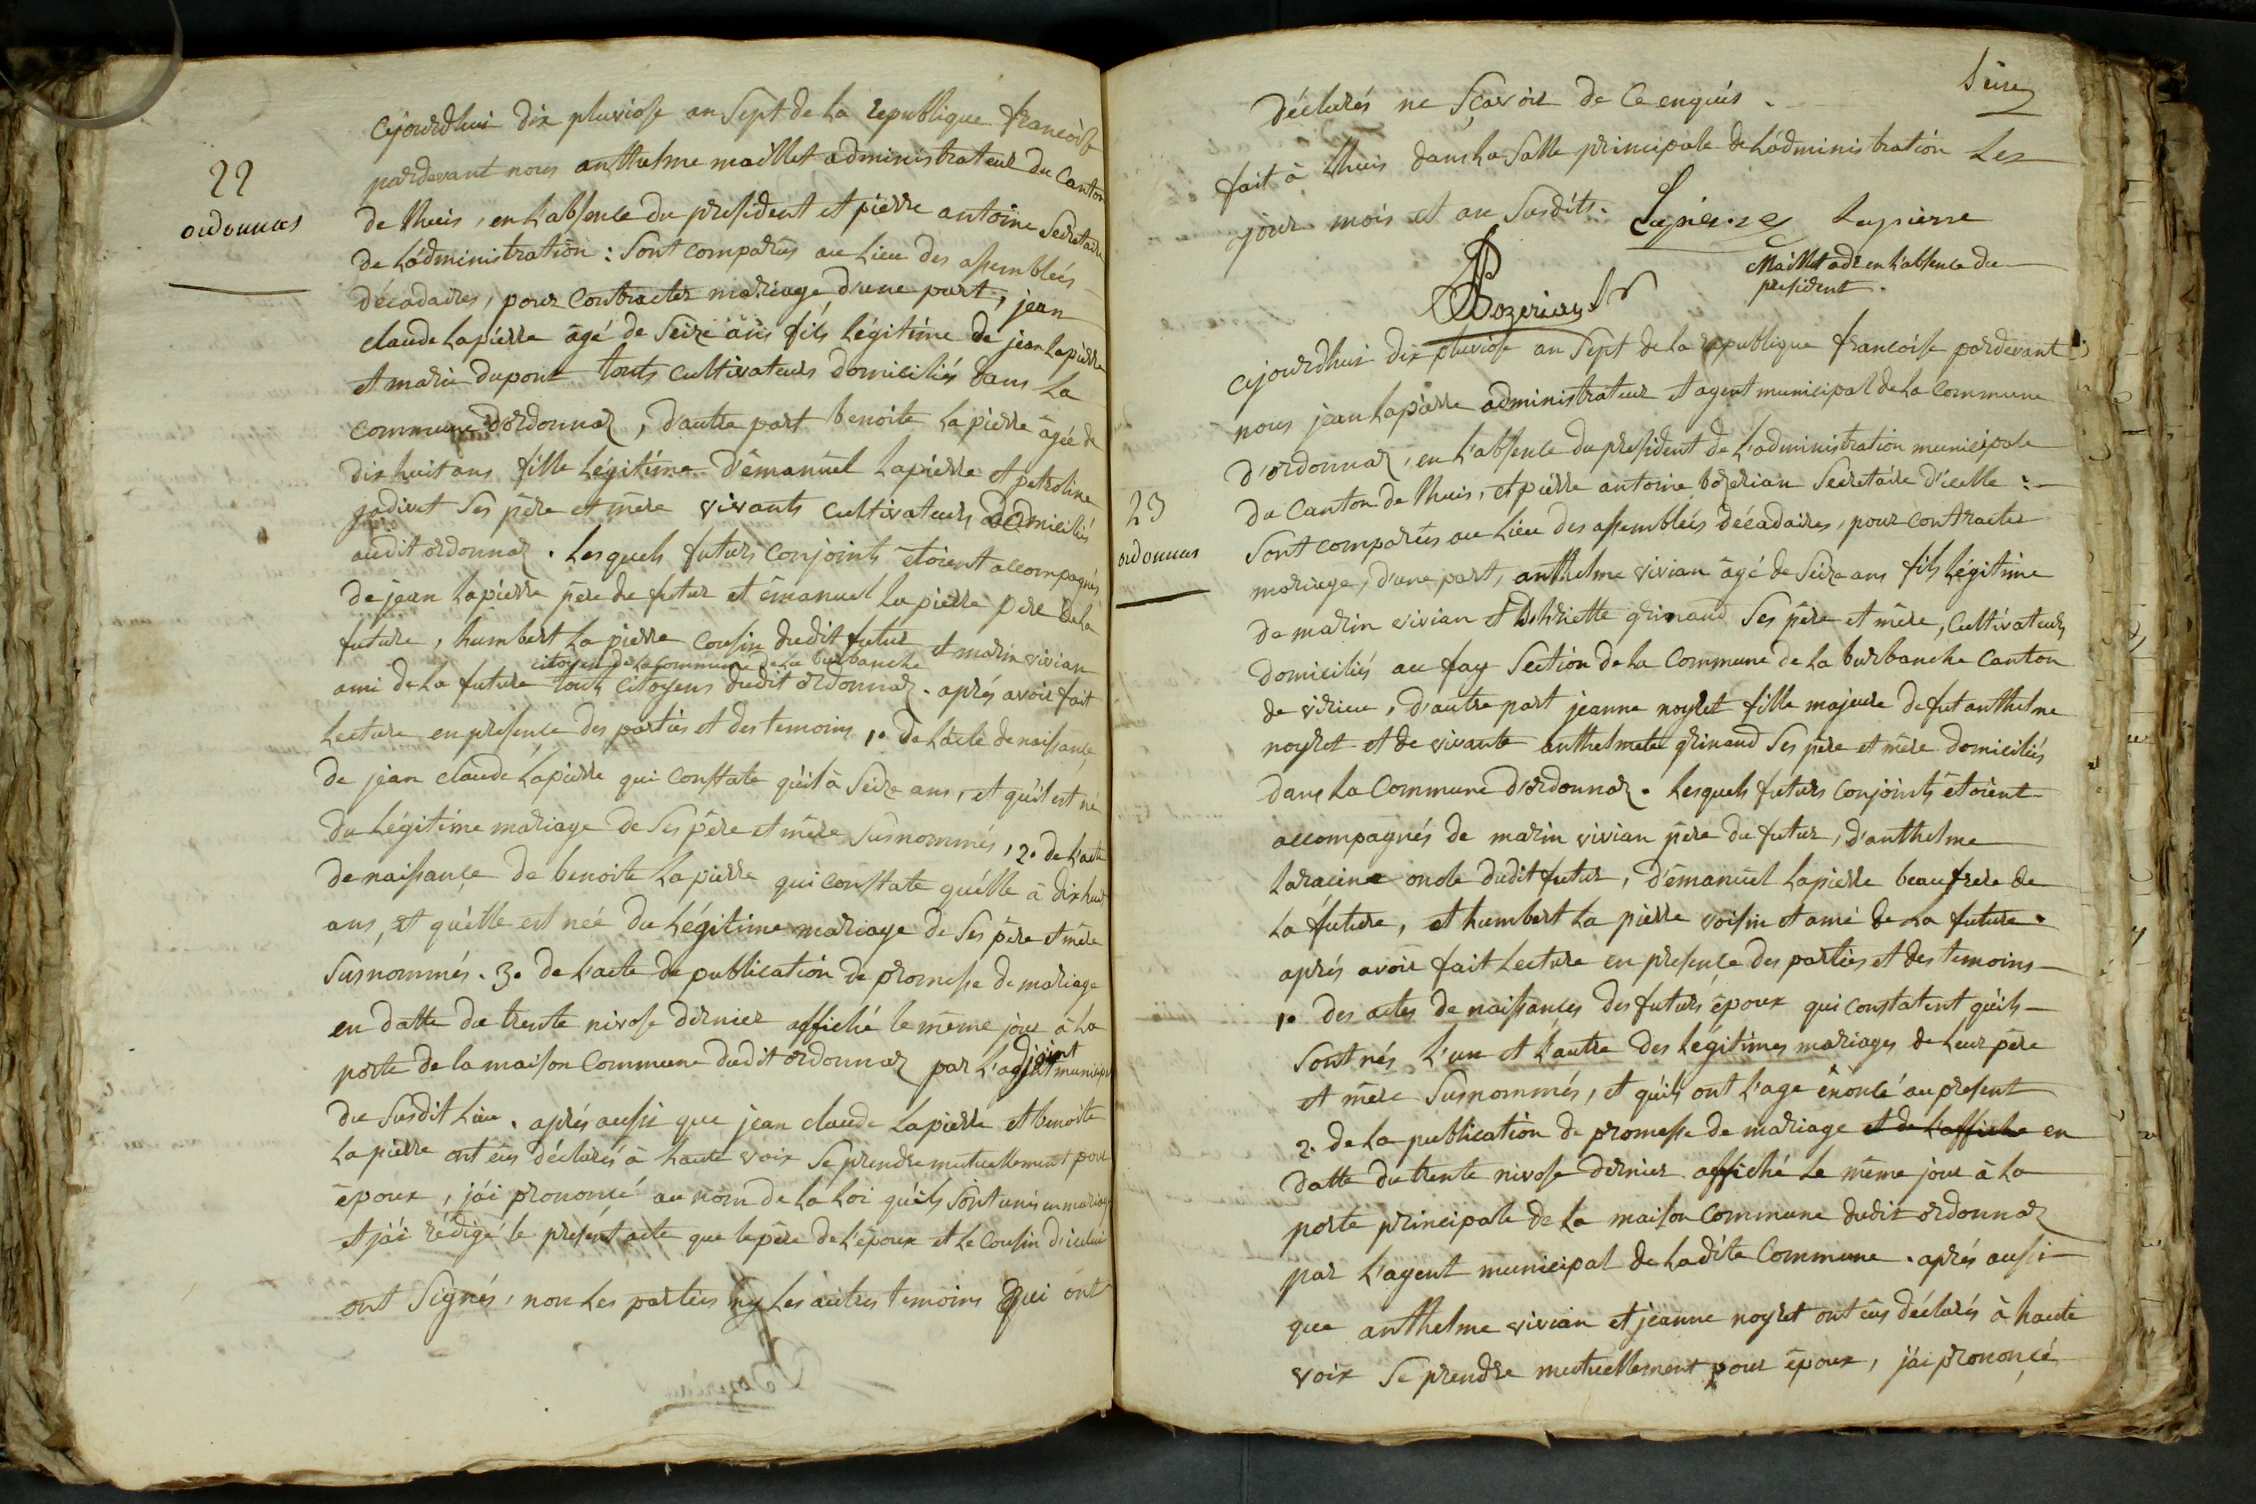 22
ordonnas
Cejourdhui dix pluviose an Sept de la republique francoise
pardevant nous anthelme maillet administrateur du Canton
de thuis, en l'absence du president et pierre antoine Secretaire
de L'administration : Sont comparus au Lieu des assemblées
décadaires, pour Contracter mariage d'une part, jean
claude Lapierre agé de Seize ans fils légitime de jean lapierre
et marie dupont touts cultivateurs domiciliés dans La
commune d'ordonnaz, d'autre part benoite Lapierre âgée de
dix huit ans fille Légitime d'émanuel Lapierre et petroline
jodivet Ses père et mère vivants cultivateurs domiciliés
audit ordonnaz. Lesquels futurs conjoints étoient accompagnés
de jean Lapierre père du futur et émanuel Lapierre père de La
future, humbert La pierre Cousin dudit futur et marin vivian
citoyen de la commune de La burbanche
ami de La future touts citoyens dudit ordonnaz. après avoir fait
Lecture en presence des parties et des temoins 1.° de L'acte de naissance
de jean claude Lapierre qui constate qu'il à Seize ans, et qu'il est né
du Légitime mariage de Ses père et mère Susnommés, 2.° de L'acte
de naissance de benoite Lapierre qui constate qu'elle à dix huit
ans, et qu'elle est née du Légitime mariage de Ses père et mère
Susnommés. 3.° de L'acte de publication de promesse de mariage
en datte du trente nivose dernier affiché le même jour à la
porte de la maison Commune dudit ordonnaz par L'adjoint municipal
du Susdit Lieu. après aussi que jean claude Lapierre et benoite
La pierre ont eûs déclarés à haute voix Se prendre mutuellement pour
époux, j'ai prononcé au nom de La Loi qu'ils Sont unis en mariage
et j'ai rédigé le present acte que le père de L'époux et Le Cousin d'icelui
ont Signés, non Les parties ny Les autres temoins qui ont
déclarés ne Sçavoir de Ce enquis.
fait à thuis dans La Salle principale de L'administration Les
jour mois et an Susdits. Lapierre Lapierre
Maillet adr en l'absence du
president.
Bozerian Sr
23
ordonnas
Cejourdhui dix pluviose an Sept de La republique francoise pardevant
nous jean Lapierre administrateur et agent municipal de La Commune
d'ordonnaz, en L'absence du president de L'administration municipale
du Canton de thuis, et pierre antoine bozerian Secretaire d'icelle :
Sont comparus au Lieu des assemblées décadaires, pour contracter
mariage, d'une part, anthelme vivian âgé de Seize ans fils Légitime
de marin vivian et grinaud Ses père et mère, Cultivateurs
domiciliés au fay Section de La Commune de La burbanche Canton
de virieu, d'autre part jeanne noyret fille majeure de fut anthelme
noyret et de vivante grinaud Ses père et mère domiciliés
dans La Commune d'ordonnaz. Lesquels futurs conjoints étoient
accompagnés de marin vivian père du futur, d'anthelme
Laracine oncle dudit futur, d'émanuel Lapierre beaufrere de
La future, et humbert La pierre voisin et ami de La future.
après avoir fait Lecture en presence des parties et des temoins
1.° des actes de naissances des futurs époux qui constatent qu'ils
Sont nés L'un et L'autre des Légitimes mariages de Leur père
et mère Susnommés, et qu'ils ont L'age énoncé au present
2.° de La publication de promesse de mariage et de L'affiche en
datte du trente nivose dernier affiché Le même jour à La
porte principale de La maison Commune dudit ordonnaz
par L'agent municipal de Ladite Commune. après aussi
que anthelme vivian et jeanne noyret ont eûs déclarés à haute
voix Se prendre mutuellement pour époux, j'ai prononcé